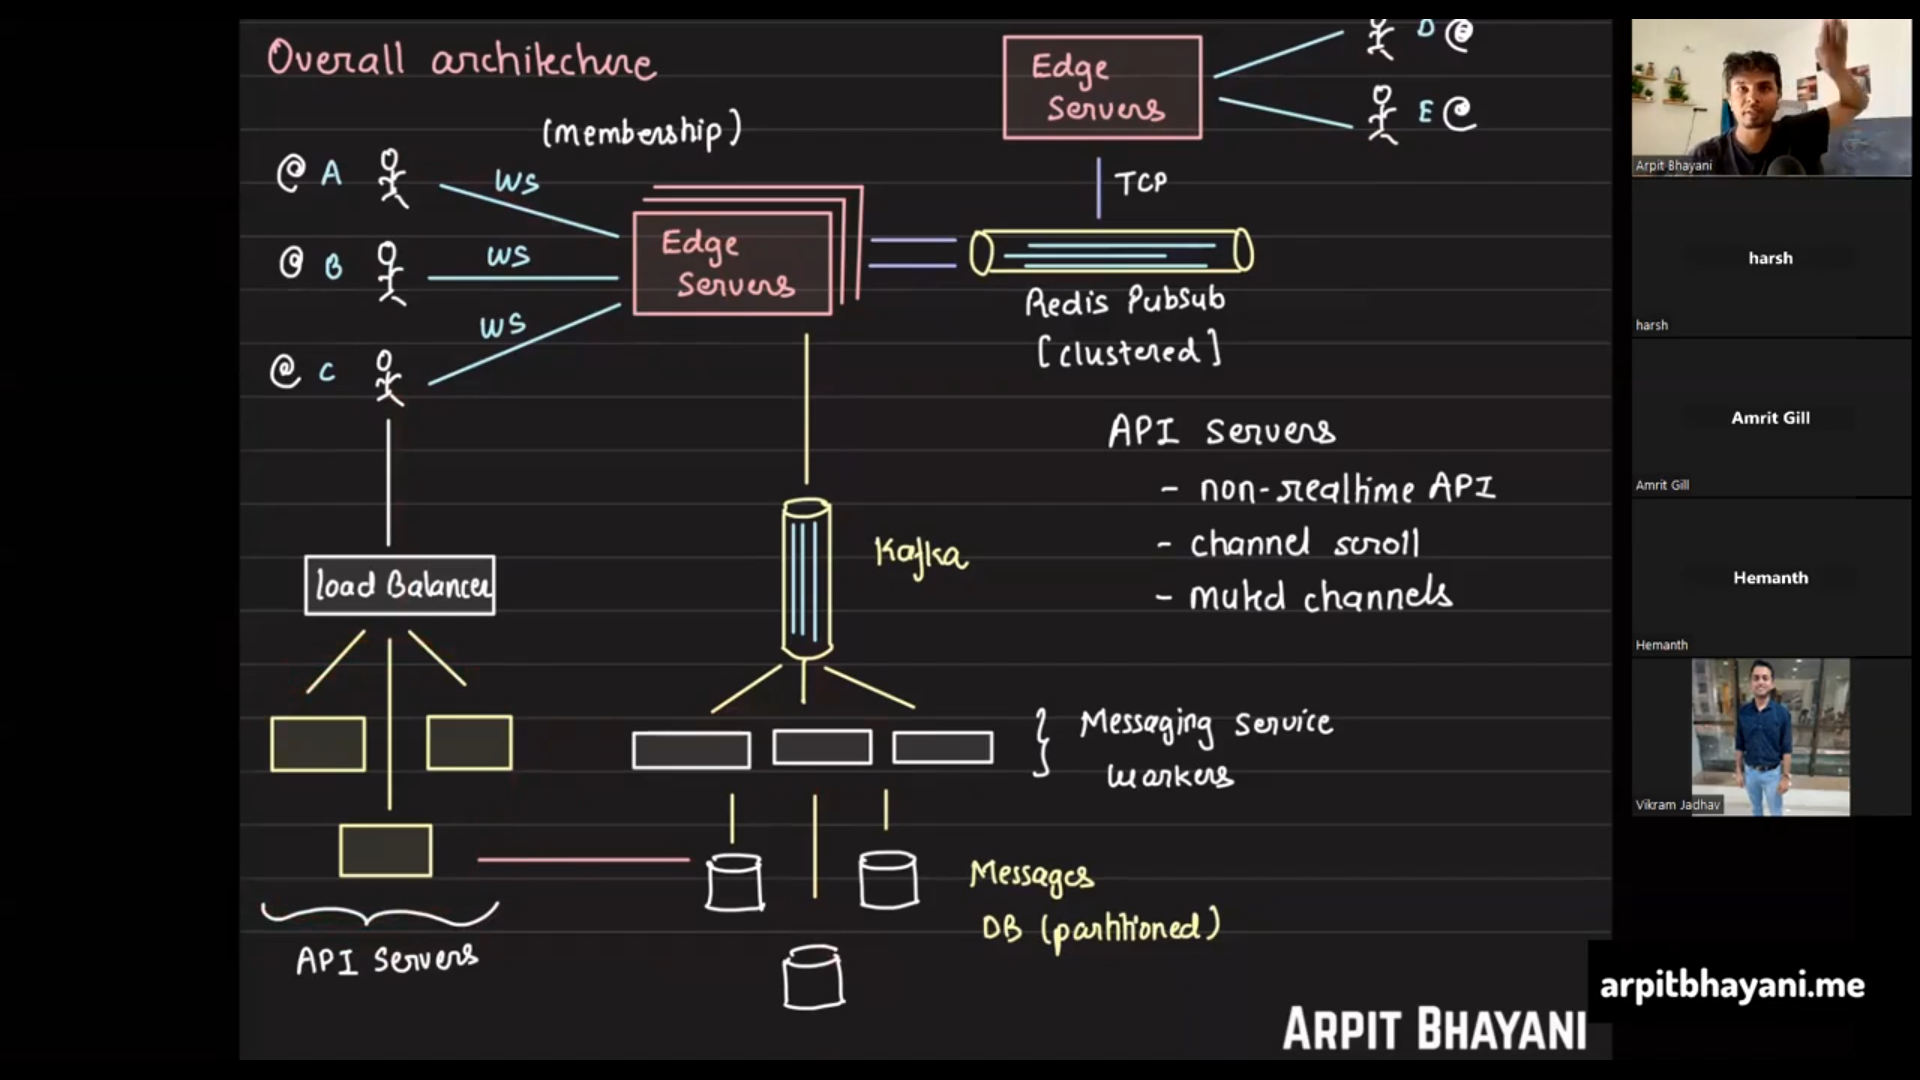 Overall architecture
(membership)
@ A
WS
@ B
WS
@ C
WS
Edge
Servers
Edge
Servers
D @
E @
TCP
Redis Pubsub
[clustered]
API servers
- non-realtime API
- channel scroll
- muted channels
Kafka
Load Balancer
Messaging service
workers
Messages
DB (partitioned)
API Servers
ARPIT BHAYANI
arpitbhayani.me
Arpit Bhayani
harsh
harsh
Amrit Gill
Amrit Gill
Hemanth
Hemanth
Vikram Jadhav